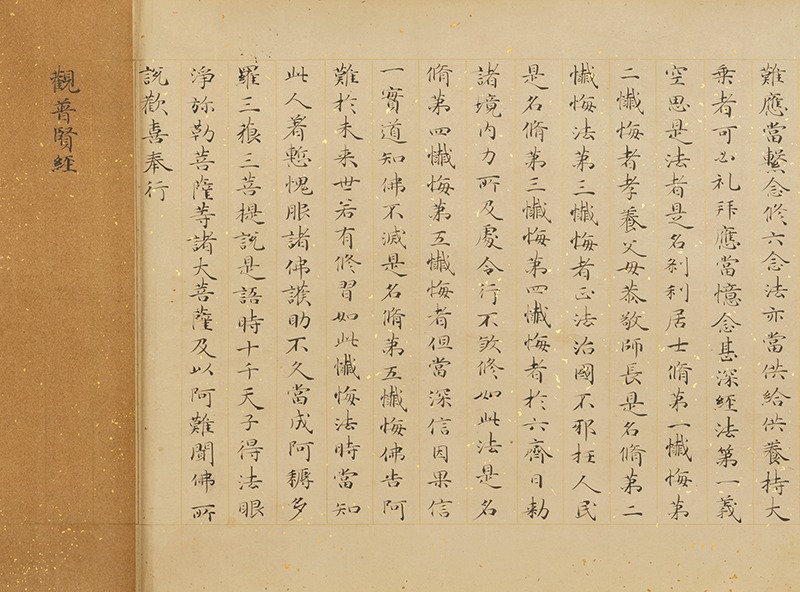 難應當繫念修六念法亦當供給供養持大
乗者可必礼拜應當憶念甚深經法第一義
空思是法者是名刹利居士脩第一懺悔第
二懺悔者孝養父母恭敬師長是名脩第二
懺悔法第三懺悔者正法治國不邪枉人民
是名脩第三懺悔第四懺悔者於六齋日勑
諸境内力所及處令行不煞修如此法是名
脩第四懺悔第五懺悔者但當深信因果信
一實道知佛不滅是名脩第五懺悔佛告阿
難於未来世若有修習如此懺悔法時當知
此人著慙愧服諸佛護助不久當成阿耨多
羅三藐三菩提說是語時十千天子得法眼
淨弥勒菩薩等諸大菩薩及以阿難聞佛所
說歡喜奉行
觀普賢經